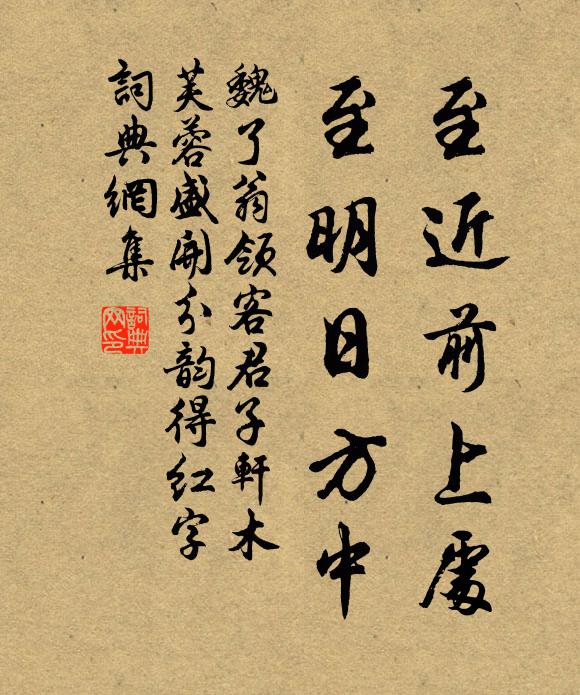 至近前上處
至明日方中
魏了翁領客君子軒木
芙蓉盛開分韵得紅字
詞典網集
詞典網印